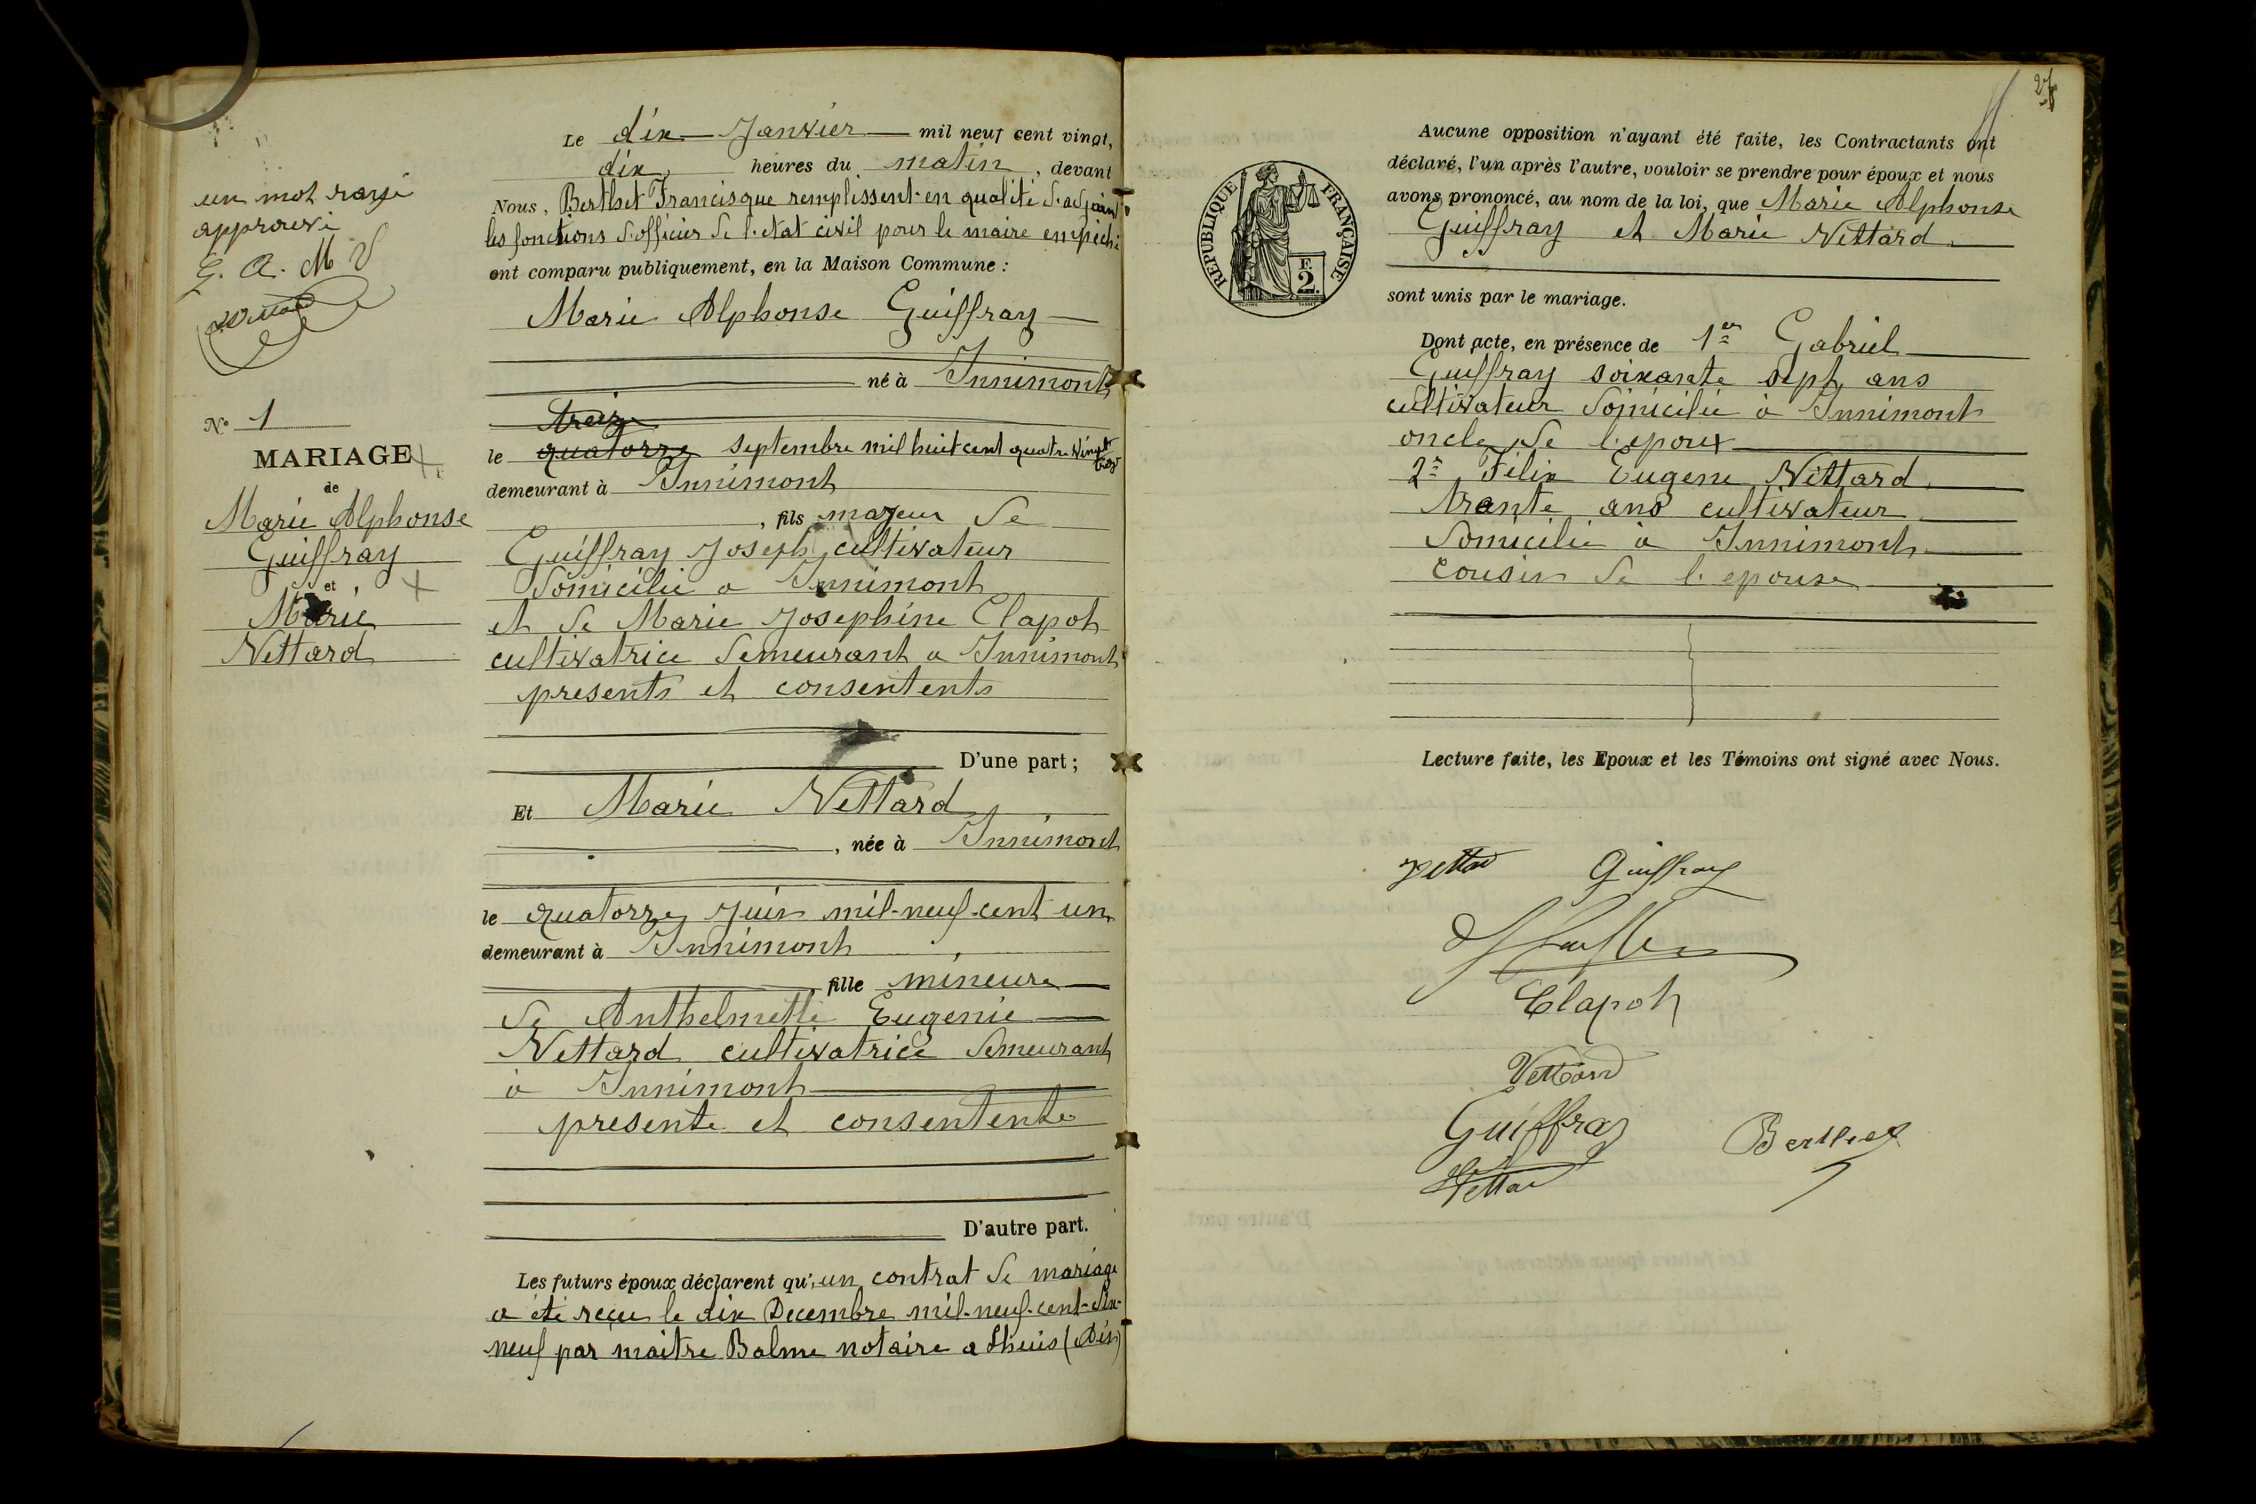 un mot rayé
approuvé
G. A. M V
Vettard
N° 1
MARIAGE
de
Marie Alphonse
Guiffray
et
Marie
Vettard
Le dix Janvier mil neuf cent vingt,
dix heures du matin, devant
Nous, Berthet Francisque remplissent en qualité d'adjoint
les fonctions d'officier de l'etat civil pour le maire empeché
ont comparu publiquement, en la Maison Commune :
Marie Alphonse Guiffray
né à Innimont
treize
le quatorze septembre mil huit cent quatre vingt
demeurant à Innimont
, fils majeur de
Guiffray Joseph, cultivateur
domicilié a Innimont
et de Marie Josephine Clapot
cultivatrice demeurant a Innimont
presents et consentents
D'une part ;
Et Marie Vettard
, née à Innimont
le quatorze Juin mil-neuf-cent-un
demeurant à Innimont
, fille mineure
de Anthelmette Eugenie
Vettard cultivatrice demeurant
à Innimont
presente et consentente
D'autre part.
Les futurs époux déclarent qu'un contrat de mariage
a été reçu le dix Decembre mil-neuf-cent-dix-
neuf par maitre Balme notaire a Lhuis (Ain)
27
REPUBLIQUE FRANÇAISE
F.
2.
Aucune opposition n'ayant été faite, les Contractants ont
déclaré, l'un après l'autre, vouloir se prendre pour époux et nous
avons prononcé, au nom de la loi, que Marie Alphonse
Guiffray et Marie Vettard
sont unis par le mariage.
Dont acte, en présence de 1er Gabriel
Guiffray soixante sept ans
cultivateur domicilié à Innimont
oncle de l'epoux
2e Félix Eugene Vettard
trante ans cultivateur
domicilié à Innimont
cousin de l'epouse
Lecture faite, les Epoux et les Témoins ont signé avec Nous.
Vettard Guiffray
Clapot
Vettard
Guiffray Berthet
Vettard